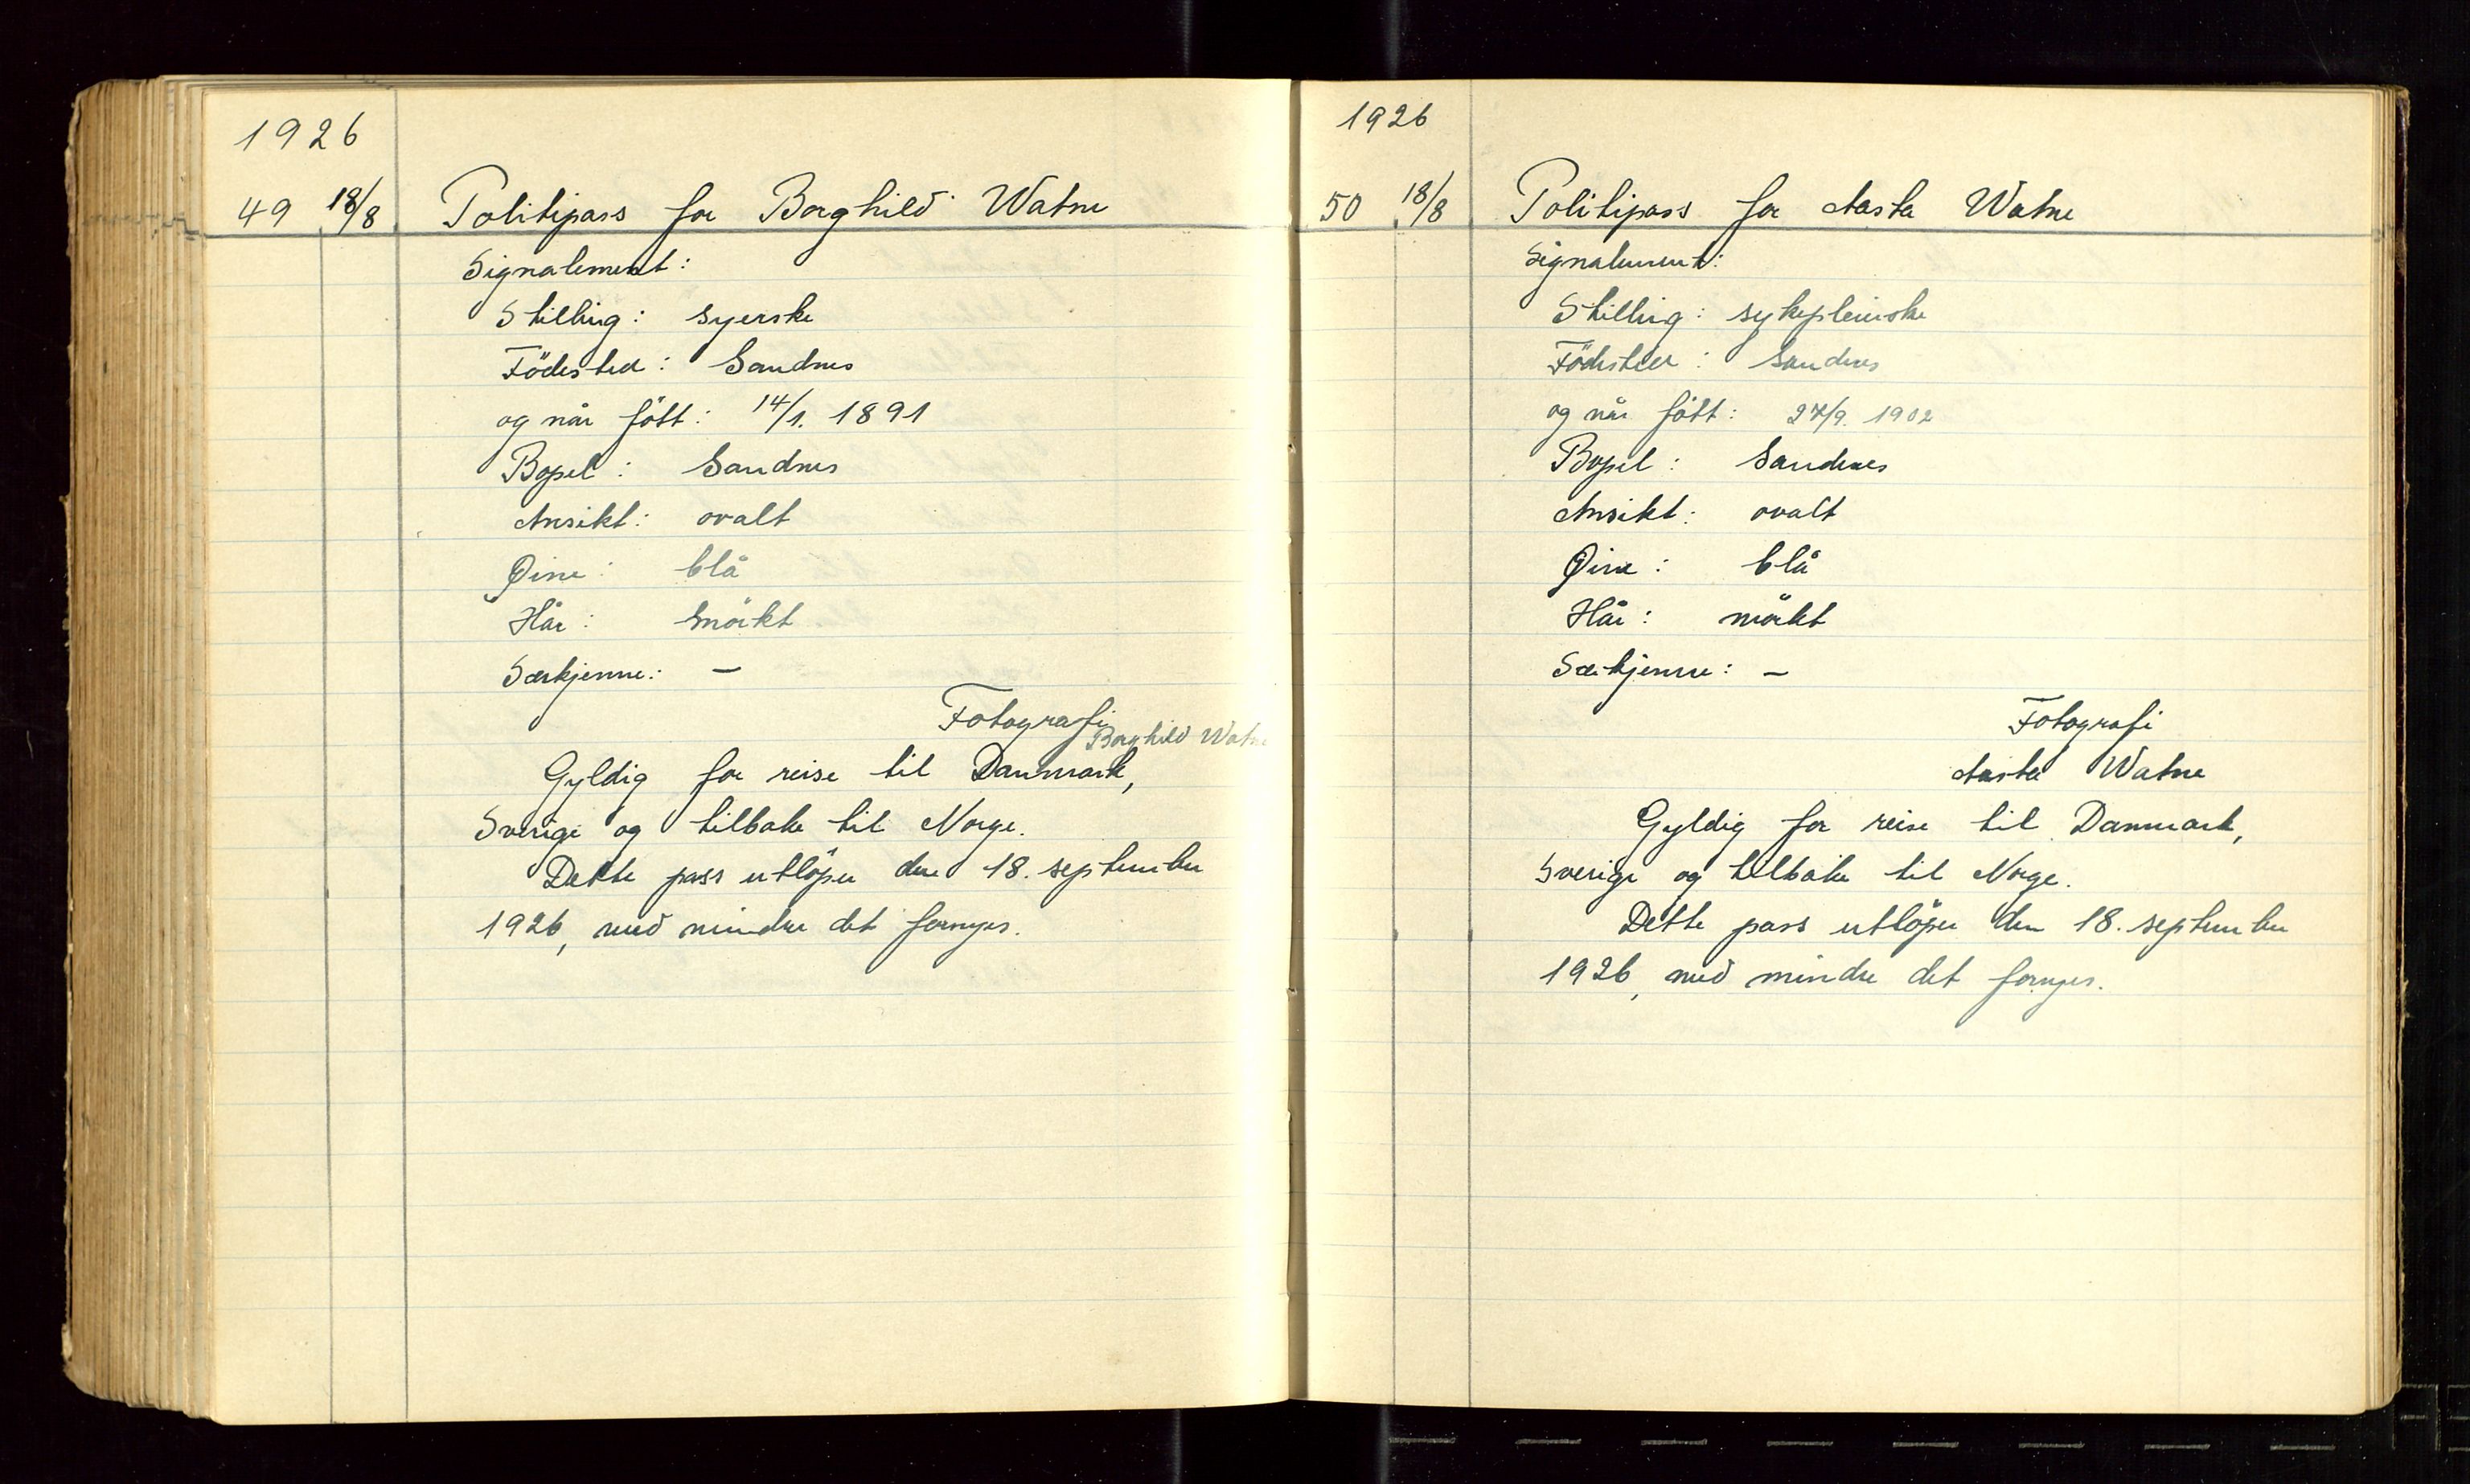 1926
49 18/8 Politipass for Borghild Watne
Signalement:
Stilling: syerske
Födested: Sandnes
og når fött: 14/1. 1891
Bopel: Sandnes
Ansikt: ovalt
Øine: blå
Hår: mörkt
Særkjenne: —
Fotografi
Borghild Watne
Gyldig for reise til Danmark,
Sverige og tilbake til Norge.
Dette pass utlöper den 18. september
1926, med mindre det fornyes.
1926
50 18/8 Politipass for Aasta Watne
Signalement:
Stilling: sykepleierske
Födested: Sandnes
og når fött: 27/9. 1902
Bopel: Sandnes
Ansikt: ovalt
Øine: blå
Hår: mörkt
Særkjenne: —
Fotografi
Aasta Watne
Gyldig for reise til Danmark,
Sverige og tilbake til Norge.
Dette pass utlöper den 18. september
1926, med mindre det fornyes.